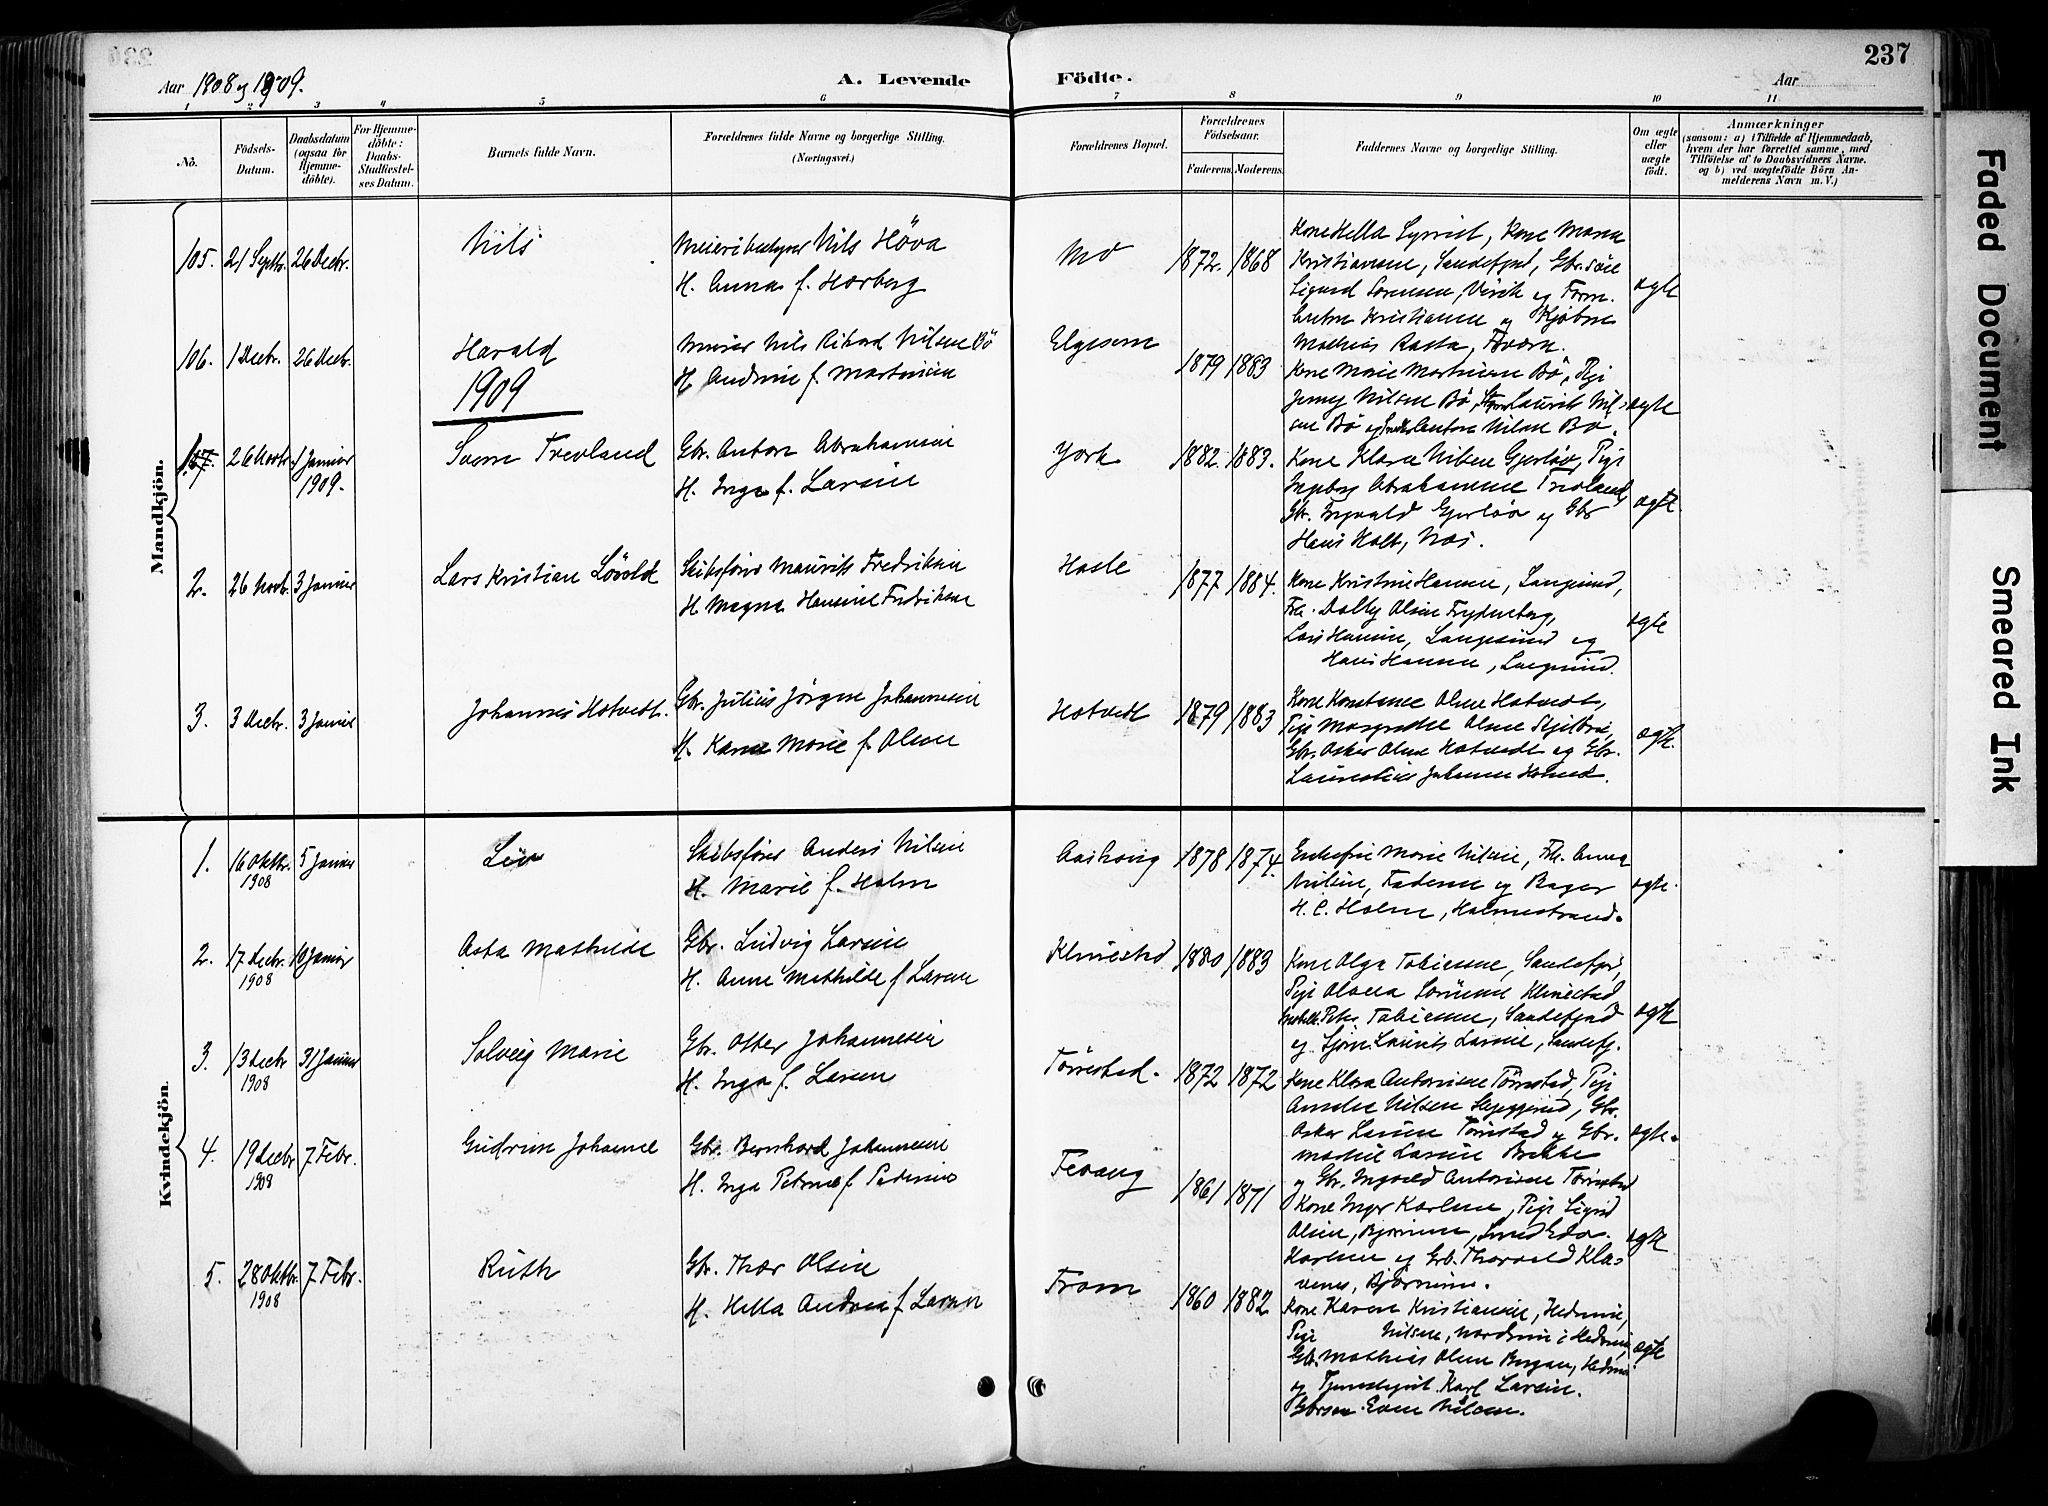 237
Aar 1908 og 1909.
A. Levende
Födte.
Aar
1 2 3 4 5 6 7 8 9 10 11
No.
Födsels-Datum.
Daabsdatum (ogsaa for Hjemmedöbte).
For Hjemmedöbte: Daabs-Stadfæstelses Datum.
Barnets fulde Navn.
Forældrenes fulde Navne og borgerlige Stilling.
(Næringsvei.)
Forældrenes Bopæl.
Forældrenes Födselsaar.
Faderens. Moderens.
Faddernes Navne og borgerlige Stilling.
Om ægte eller uægte födt.
Anmærkninger
(saasom: a) i Tilfælde af Hjemmedaab,
hvem der har forrettet samme, med
Tilföielse af to Daabsvidners Navne.
og b) ved uægtefödte Börn Anmelderens Navn m. V.)
Mandkjön.
105. 21 Septbr. 26 Decbr. Nils
Meieribestyrer Nils Höva
H. Anna f. Horberg
Mo 1872. 1868
Kristiansen, Sandefjord,
Sigurd Sorensen, Virik og
ægte
106. 1 Decbr. 26 Decbr. Harald
Nils Rikard Nilsen Bö
H. Andrine f. Martinsen
Elgesem 1879 1883
Mathias Rasta,
Kone Marie Martinsen Bö, Pige
Jenny Nilsen Bö, Laurits Nilsen Bö og Anton Nilsen Bö.
ægte
1909
1. 26 Novbr. 1 Januar 1909. Svern Trevland
Gbr. Anton Abrahamsen
H. Inga f. Larsen
York 1882. 1883.
Kone Klara Nilsen Gjerlöv, Pige
Ingeborg Abrahamsen Trevland
Gbr. Ingvald Gjerlöv og Gbr
Hans Holt, Næs.
ægte.
2. 26 Novbr. 3 Januar Lars Kristian Lövold
Skibsförer Maurits Fredriksen
H. Magna Hansine Fredriksen
Hasle 1877 1884.
Kone Kristine Hansen, Langesund,
Frk. Dolly Olsen Frydenberg,
Lars Hansen, Langesund og
Hans Hansen, Langesund.
ægte
3. 3 Decbr. 3 Januar Johannes Hotvedt.
Gbr. Julius Jörgen Johannesen
H. Karen Marie f. Olsen
Hotvedt 1879 1883
Kone Konstanse Olsen Hotvedt,
Pige Margrethe Olsen
Gbr. Oskar Olsen Hotvedt og Gbr.
Johannesen
ægte.
Kvindekjön.
1. 16 Oktbr. 1908 5 Januar Liv
Skibsförer Anders Nilsen
H. Marie f. Holm
1878 1874.
Enkefru Marie Nilsen, Frk. Anna
Nilsen, Faderen og Bager
H. C. Holm, Holmestrand.
ægte.
2. 17 Decbr. 1908 10 Januar Asta Mathilde
Gbr. Ludvig Larsen
H. Anne Mathilde f. Larsen
Klinestad 1880 1883
Kone Olga Tobiesen, Sandefjord,
Pige Olava Sörensen Klinestad
Peter Tobiesen, Sandefjord
og Laurits Larsen, Sandefj.
ægte
3. 13 Decbr 1908 31 Januar Solveig Marie
Gbr. Otter Johannesen
H. Inga f. Larsen
Törrestad. 1872 1872
Kone Klara Antonisen Törrestad, Pige
Amalie Nilsen Skjeggerud, Gbr.
Oskar Larsen Törrestad og Gbr.
Larsen Brekke
og Gbr. Ingvald Antonisen Törrestad
ægte.
4. 19 Decbr 1908 7 Febr. Gudrun Johanne
Gbr. Bernhard Johannesen
H. Inga Petrine f. Pedersen
Fevang 1861 1871
Kone Inger Karlsen, Pige Sigrid
Olsen, Bjørnum,
Karlsen og Grb. Thorvald Klavenes, Bjørnum.
ægte
5. 28 Oktbr. 1908 7. Febr. Ruth
Gbr. Thor Olsen
H. Hella Andrea f. Larsen
From 1860 1882
Kone Karen Kristiansen, Hedrum,
Pige Nilsen, i Hedrum,
Gbr. Mathias Olsen Bergan, Hedrum
og Karl Larsen.
Even Nilsen.
ægte
Faded Document
Smeared Ink